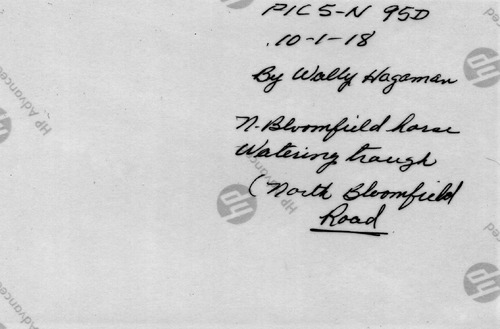 PICS-N 95D
10-1-18
By Wally Hagaman
N. Bloomfield horse
Watering trough
(North Bloomfield
Road
HP Advanced
hp
HP Advanced
hp
hp
HP Advanced
hp
hp
HP Advanced